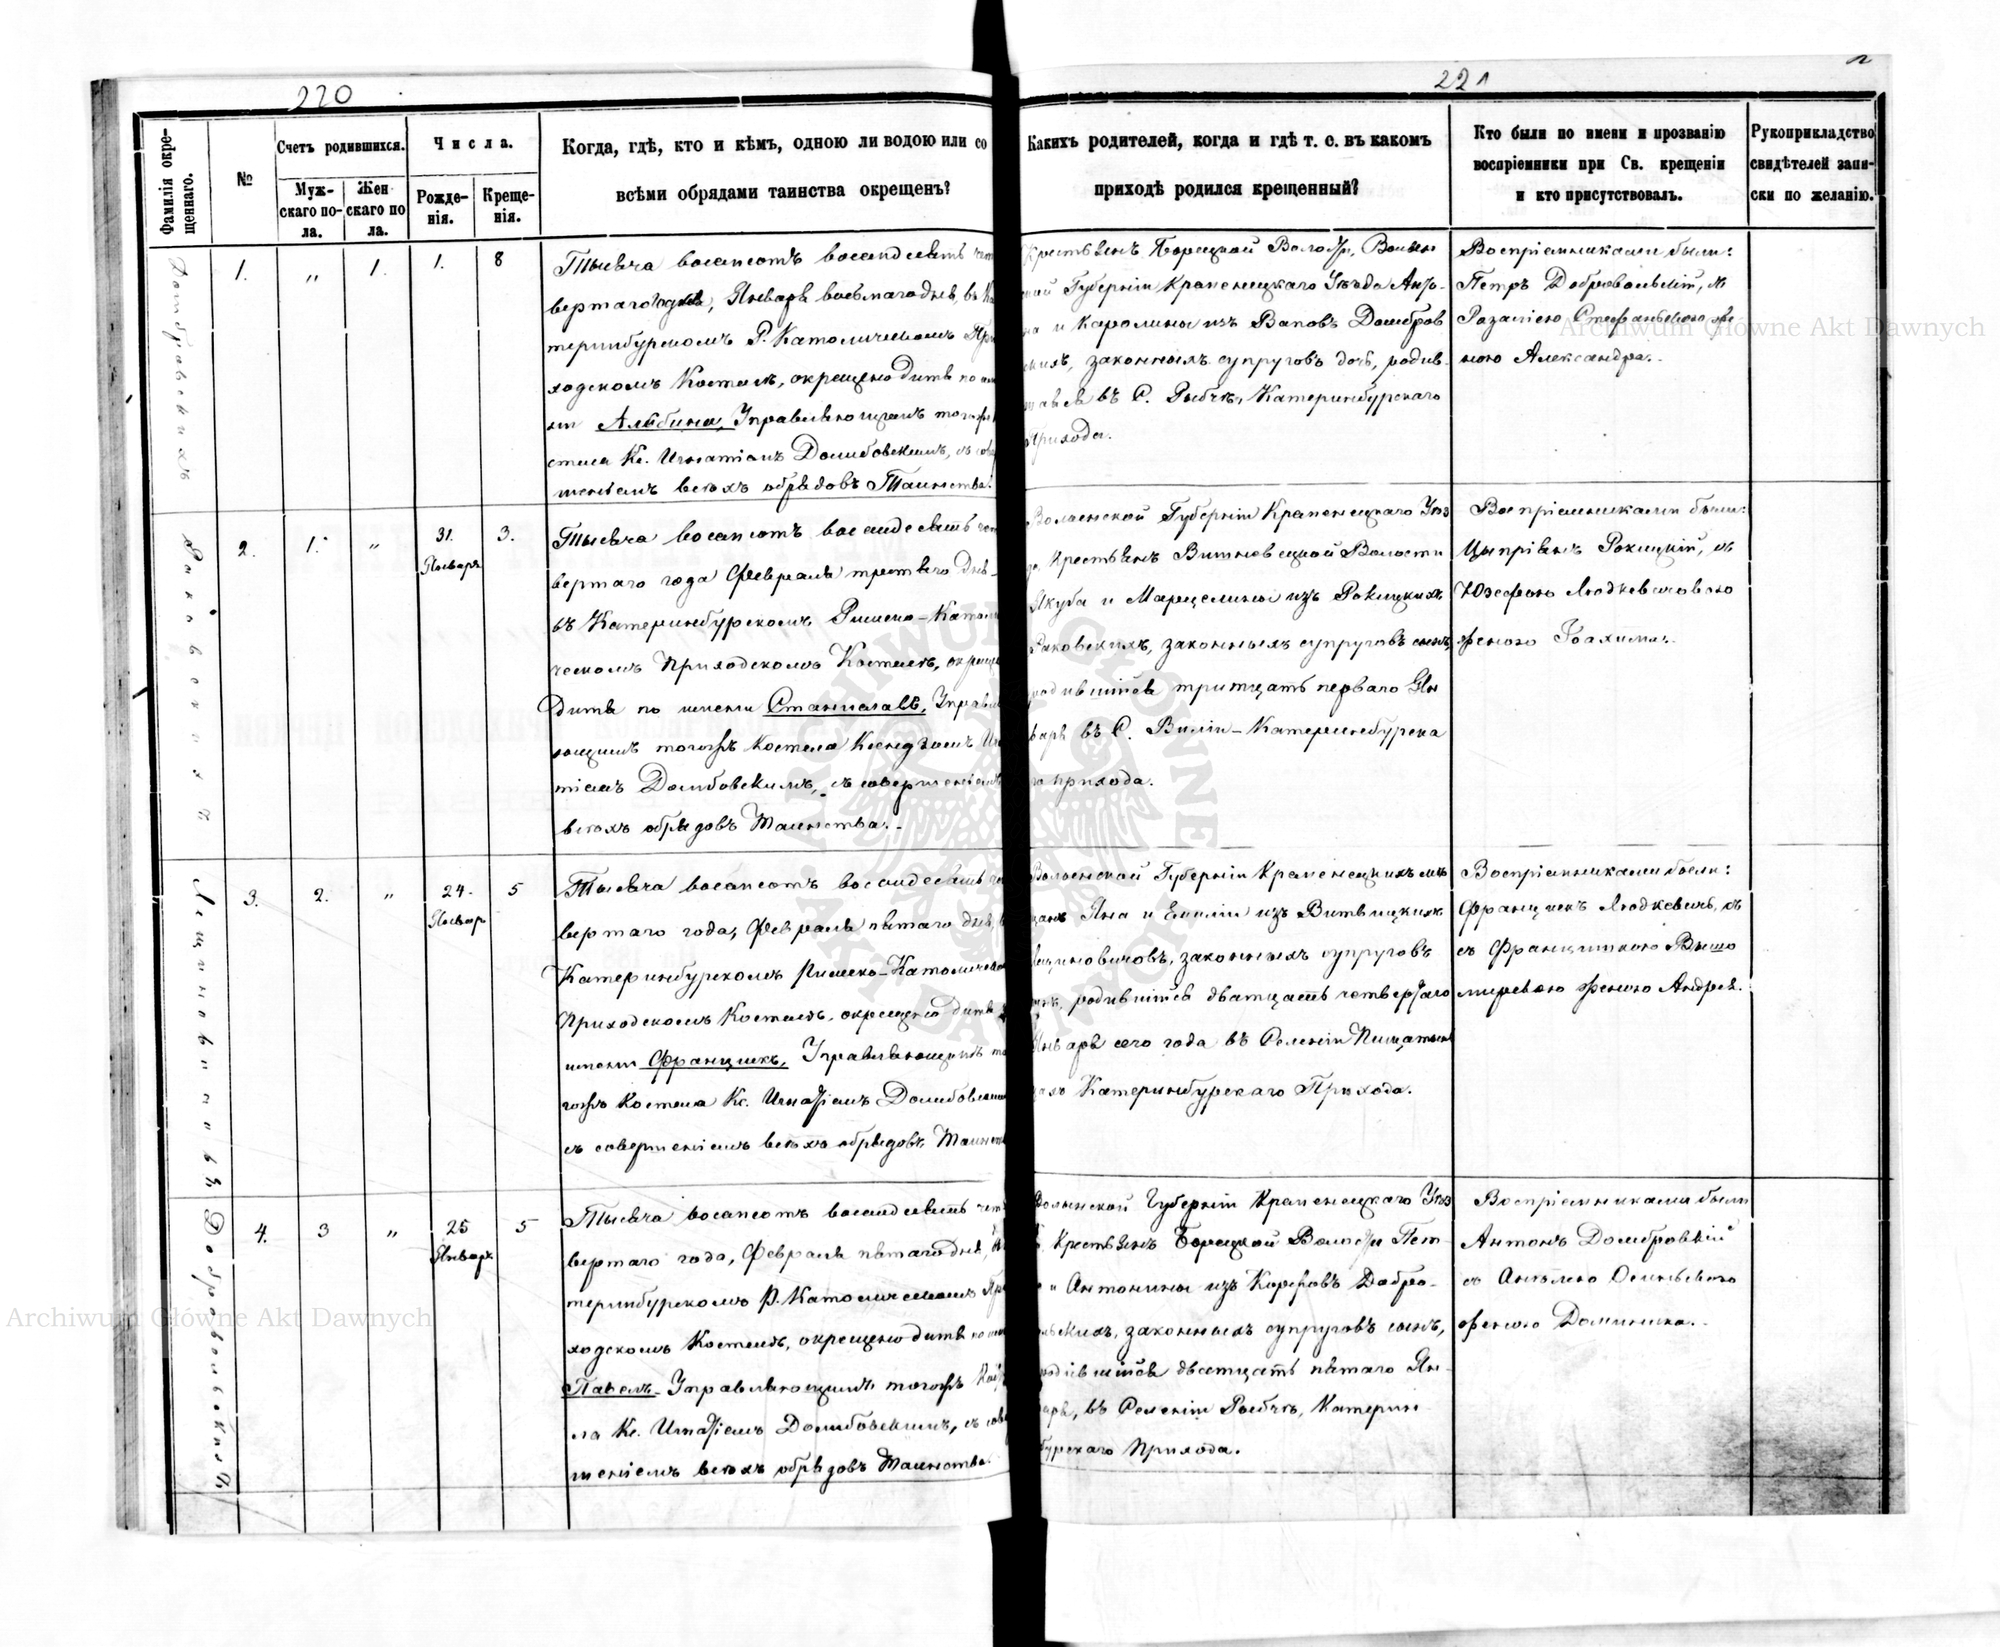 220
221
Фамилія окре-
щеннаго.
№
Счетъ родившихся.
Муж-
скаго по-
ла.
Жен
скаго по
ла.
Числа.
Рожде-
нія.
Креще-
нія.
Когда, гдѣ, кто и кѣмъ, одною ли водою или со
всѣми обрядами таинства окрещенъ?
Какихъ родителей, когда и гдѣ т. е. въ какомъ
приходѣ родился крещенный?
Кто были по имени и прозванію
воспріемники при Св. крещеніи
и кто присутствовалъ.
Рукоприкладство
свидѣтелей запи-
ски по желанію.
Домбровскихъ
1.
"
1
1.
8
Тысяча восемсотъ восемдесятъ чет
вертаго года, Января восьмаго дня, въ Ка
теринбурскомъ Р. Католическомъ При
ходскомъ Костелѣ, окрещено дитя по име
ни Альбина, Управляющимъ тогожъ
стела Кс. Игнатіемъ Домбовскимъ, съ совер
шеніемъ всѣхъ обрядовъ Таинства.
Крестьянъ Борецкой Волости, Волын
ской Губерніи Кременецкаго Уѣзда Анто-
на и Каролины изъ Ваповъ Домбров
скихъ, законныхъ супруговъ дочь, родив-
шаяся въ С. Рыбчѣ, Катеринбурскаго
Прихода.
Воспріемниками были:
Петръ Добровольскій, съ
Розаліею Стефанскою же
ною Александра.
Раковскаго
2.
1.
"
31.
Января
3.
Тысяча восемсотъ восемдесятъ чет
вертаго года Февраля третьяго дня
въ Катеринбурскомъ Римско-Католи
ческомъ Приходскомъ Костелѣ, окреще
дитя по имени Станиславъ, Управля
ющимъ тогожъ Костела Ксендзомъ Игна
тіемъ Домбовскимъ, съ совершеніемъ
всѣхъ обрядовъ Таинства.
Волынской Губерніи Кременецкаго Уѣз
да, Крестьянъ Вишневецкой Волости
Якуба и Марцелины изъ Рокицкихъ
Раковскихъ, законныхъ супруговъ сынъ,
родившійся тритцать перваго Ян
варя въ С. Виліи Катеринбурска
го прихода.
Воспріемниками были:
Цыпріянъ Рокицкій, съ
Юзефою Людкевичовою
женою Іоахима.
3.
2.
"
24.
Январ
5
Тысяча восемсотъ восемдесятъ че
вертаго года, Февраля пятаго дня, въ
Катеринбурскомъ Римско-Католическо
Приходскомъ Костелѣ, окрещено дитя
имени Францискъ, Управляющимъ то
гожъ Костела Кс. Игнатіемъ Домбовским
съ совершеніемъ всѣхъ обрядовъ Таинст
Волынской Губерніи Кременецкихъ мѣ
щанъ Яна и Емиліи изъ Витвицкихъ
законныхъ супруговъ
сынъ, родившійся дватцать четвертаго
Января сего года въ Селеніи
Катеринбурскаго Прихода.
Воспріемниками были:
Францискъ Людкевичъ, съ
съ Францишкою Вышо
мирскою женою Андрея.
Добровольскій
4.
3
"
25
Января
5
Тысяча восемсотъ восемдесятъ чет
вертаго года, Февраля пятаго дня, Ка
теринбурскомъ Р. Католическомъ При
ходскомъ Костелѣ, окрещено дитя по име
Павелъ Управляющимъ тогожъ Косте
ла Кс. Игнатіемъ Домбовскимъ, съ совер
шеніемъ всѣхъ обрядовъ Таинства.
Волынской Губерніи Кременецкаго Уѣз
Крестьянъ Борецкой Волости Пет-
и Антонины изъ Добро-
вольскихъ, законныхъ супруговъ сынъ,
родившійся дватцать пятаго Ян-
варя, въ Селеніи Рыбчѣ, Катерин
бурскаго Прихода.
Воспріемниками были
Антонъ Домбровскій
съ Анелею
женою Доминика.
Archiwum Główne Akt Dawnych
Archiwum Główne Akt Dawnych
ARCHIWUM GŁÓWNE AKT DAWNYCH